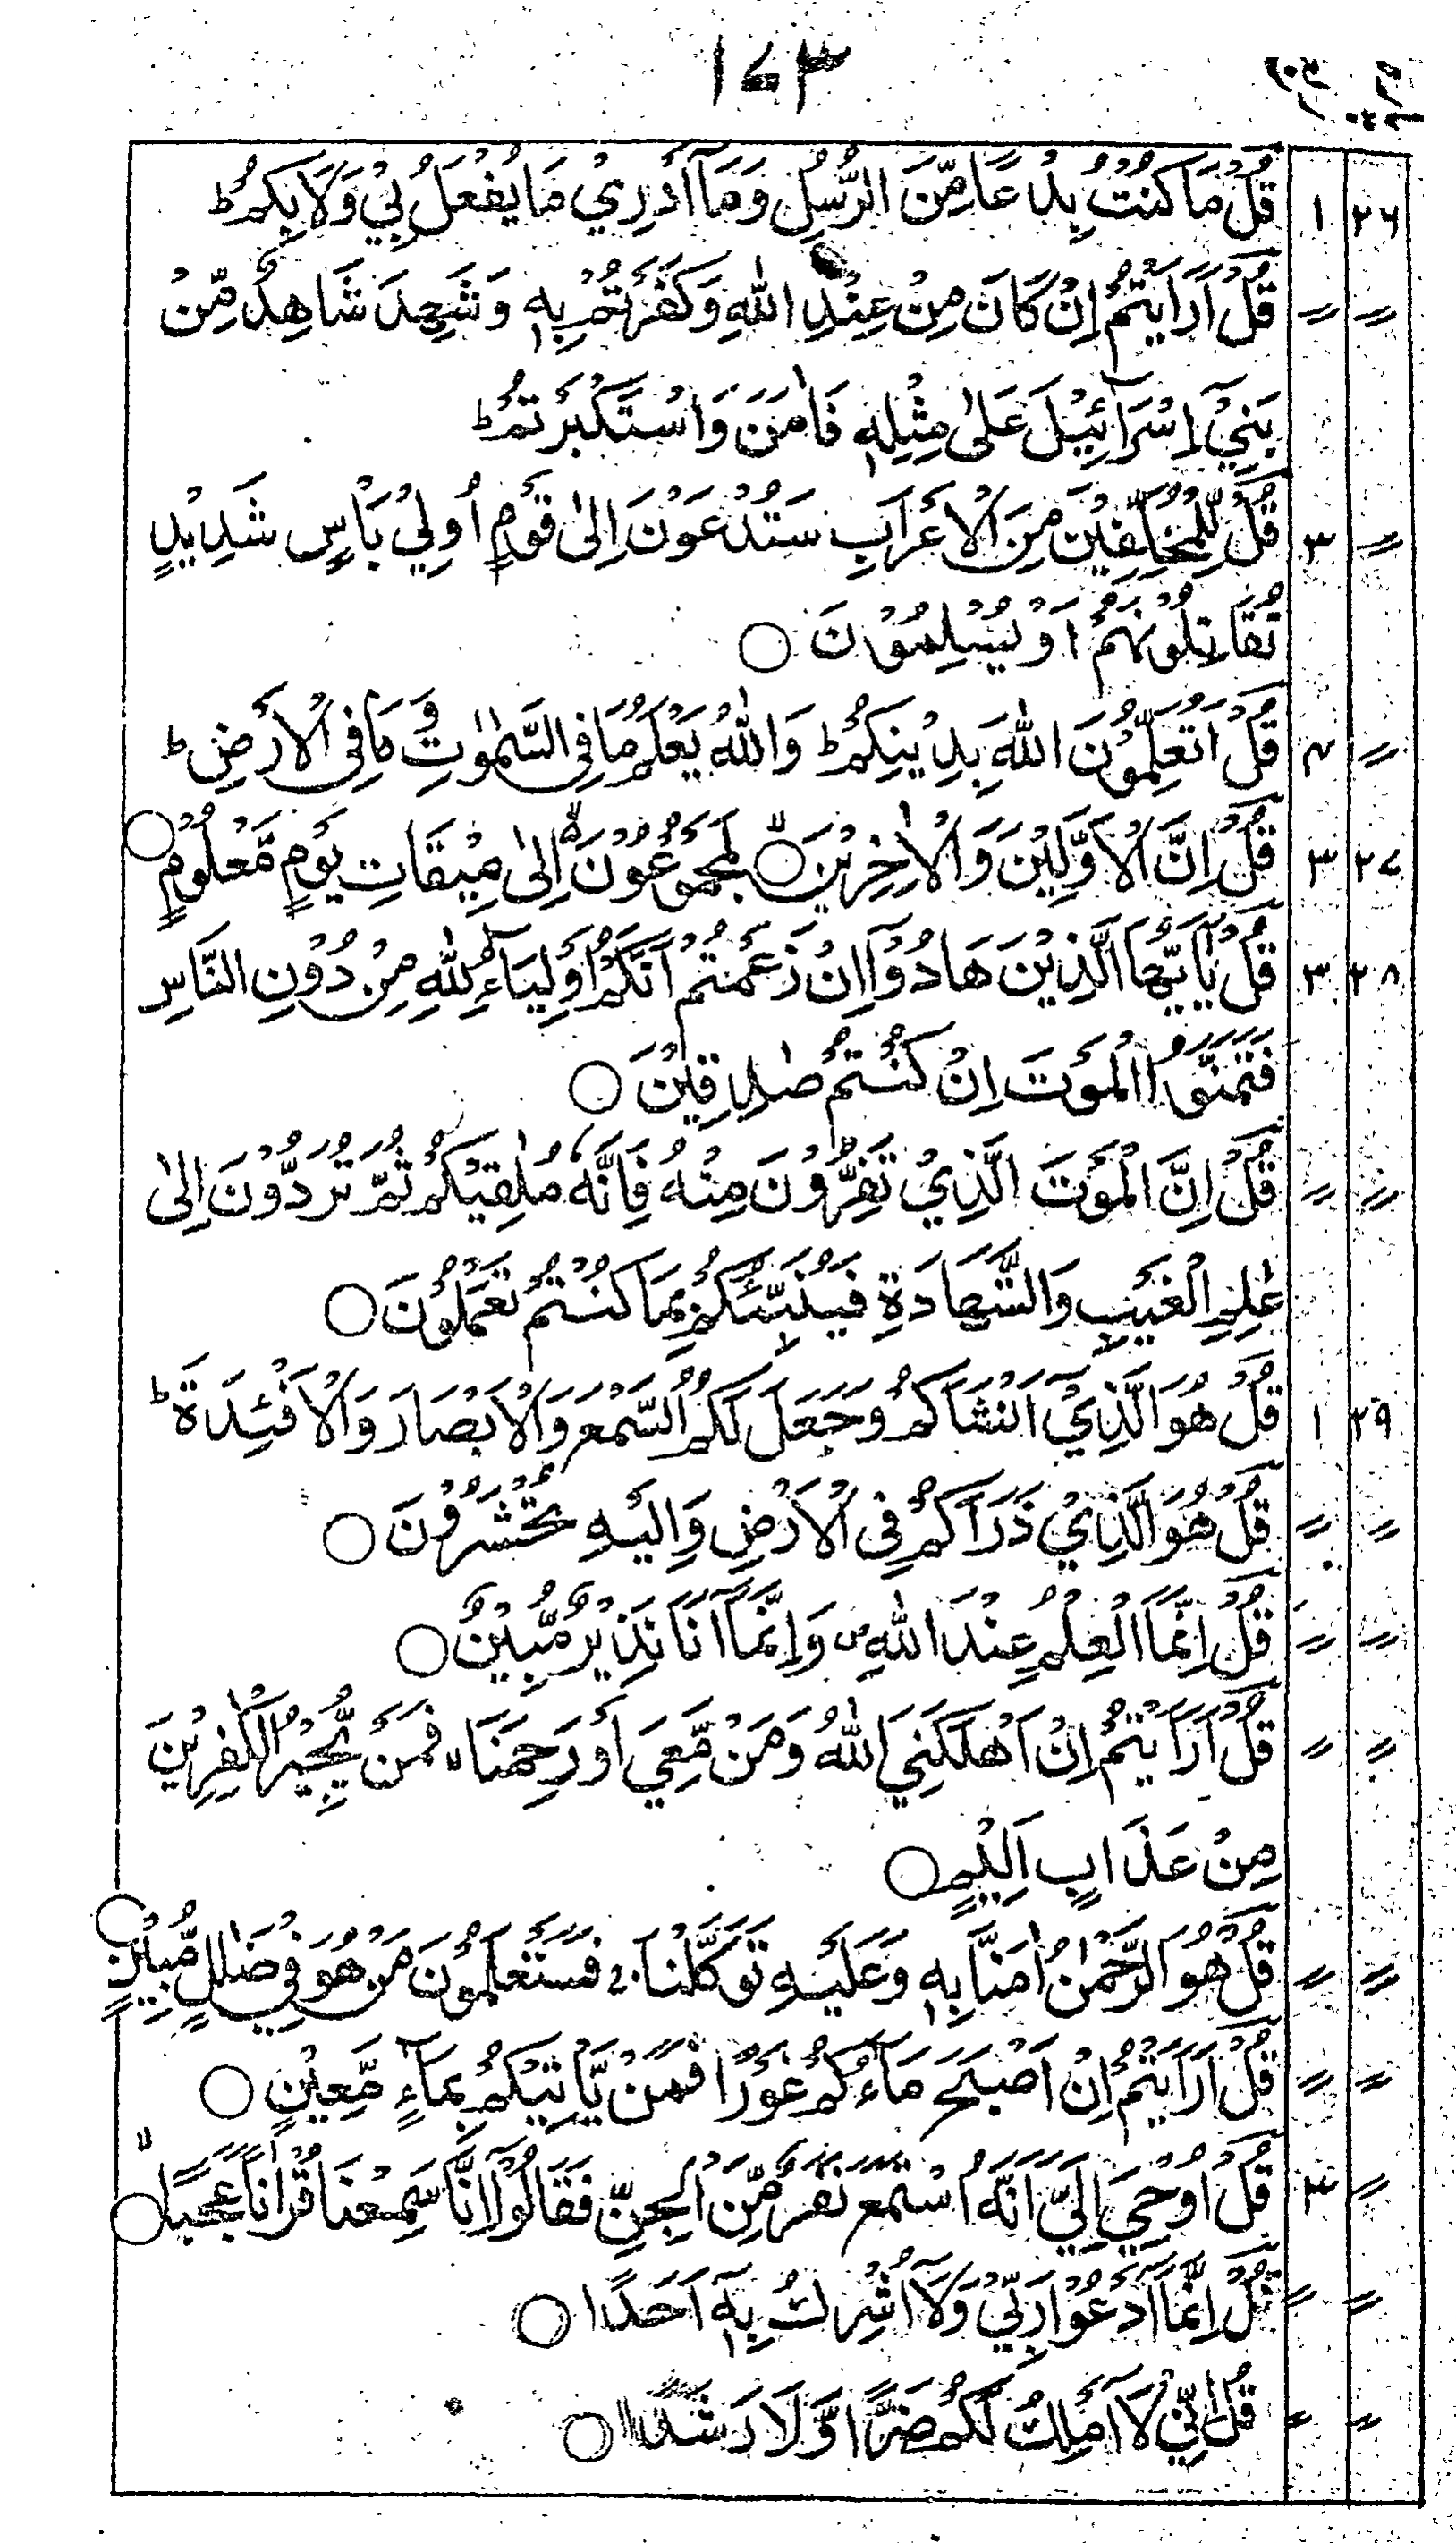 ۱۷۳
۲۶ ۱ قُلْ مَا كُنْتُ بِدْعًا مِّنَ الرُّسُلِ وَمَآ اَدْرِيْ مَا يُفْعَلُ بِيْ وَلَا بِكُمْ ط
〃 〃 قُلْ اَرَاَيْتُمْ اِنْ كَانَ مِنْ عِنْدِ اللّٰهِ وَكَفَرْتُمْ بِهٖ وَشَهِدَ شَاهِدٌ مِّنْ
بَنِيْٓ اِسْرَآئِيْلَ عَلٰى مِثْلِهٖ فَاٰمَنَ وَاسْتَكْبَرْتُمْ ط
〃 ۳ قُلْ لِّلْمُخَلَّفِيْنَ مِنَ الْاَعْرَابِ سَتُدْعَوْنَ اِلٰى قَوْمٍ اُولِيْ بَاْسٍ شَدِيْدٍ
تُقَاتِلُوْنَهُمْ اَوْ يُسْلِمُوْنَ ○
〃 ۴ قُلْ اَتُعَلِّمُوْنَ اللّٰهَ بِدِيْنِكُمْ ط وَاللّٰهُ يَعْلَمُ مَا فِى السَّمٰوٰتِ وَمَا فِى الْاَرْضِ ط
۲۷ ۳ قُلْ اِنَّ الْاَوَّلِيْنَ وَالْاٰخِرِيْنَ ○ لَمَجْمُوْعُوْنَ اِلٰى مِيْقَاتِ يَوْمٍ مَّعْلُوْمٍ ○
۲۸ ۳ قُلْ يٰٓاَيُّهَا الَّذِيْنَ هَادُوْٓا اِنْ زَعَمْتُمْ اَنَّكُمْ اَوْلِيَآءُ لِلّٰهِ مِنْ دُوْنِ النَّاسِ
فَتَمَنَّوُا الْمَوْتَ اِنْ كُنْتُمْ صٰدِقِيْنَ ○
〃 〃 قُلْ اِنَّ الْمَوْتَ الَّذِيْ تَفِرُّوْنَ مِنْهُ فَاِنَّهٗ مُلٰقِيْكُمْ ثُمَّ تُرَدُّوْنَ اِلٰى
عٰلِمِ الْغَيْبِ وَالشَّهَادَةِ فَيُنَبِّئُكُمْ بِمَا كُنْتُمْ تَعْمَلُوْنَ ○
۲۹ ۱ قُلْ هُوَ الَّذِيْٓ اَنْشَاَكُمْ وَجَعَلَ لَكُمُ السَّمْعَ وَالْاَبْصَارَ وَالْاَفْئِدَةَ ط
〃 〃 قُلْ هُوَ الَّذِيْ ذَرَاَكُمْ فِى الْاَرْضِ وَاِلَيْهِ تُحْشَرُوْنَ ○
〃 〃 قُلْ اِنَّمَا الْعِلْمُ عِنْدَ اللّٰهِ ص وَاِنَّمَآ اَنَا نَذِيْرٌ مُّبِيْنٌ ○
〃 〃 قُلْ اَرَاَيْتُمْ اِنْ اَهْلَكَنِيَ اللّٰهُ وَمَنْ مَّعِيَ اَوْ رَحِمَنَا لا فَمَنْ يُّجِيْرُ الْكٰفِرِيْنَ
مِنْ عَذَابٍ اَلِيْمٍ ○
〃 〃 قُلْ هُوَ الرَّحْمٰنُ اٰمَنَّا بِهٖ وَعَلَيْهِ تَوَكَّلْنَا ج فَسَتَعْلَمُوْنَ مَنْ هُوَ فِيْ ضَلٰلٍ مُّبِيْنٍ ○
〃 〃 قُلْ اَرَاَيْتُمْ اِنْ اَصْبَحَ مَآؤُكُمْ غَوْرًا فَمَنْ يَّاْتِيْكُمْ بِمَآءٍ مَّعِيْنٍ ○
〃 ۳ قُلْ اُوْحِيَ اِلَيَّ اَنَّهُ اسْتَمَعَ نَفَرٌ مِّنَ الْجِنِّ فَقَالُوْٓا اِنَّا سَمِعْنَا قُرْاٰنًا عَجَبًا لا ○
〃 〃 قُلْ اِنَّمَآ اَدْعُوْا رَبِّيْ وَلَآ اُشْرِكُ بِهٖٓ اَحَدًا ○
〃 〃 قُلْ اِنِّيْ لَآ اَمْلِكُ لَكُمْ ضَرًّا وَّلَا رَشَدًا ○